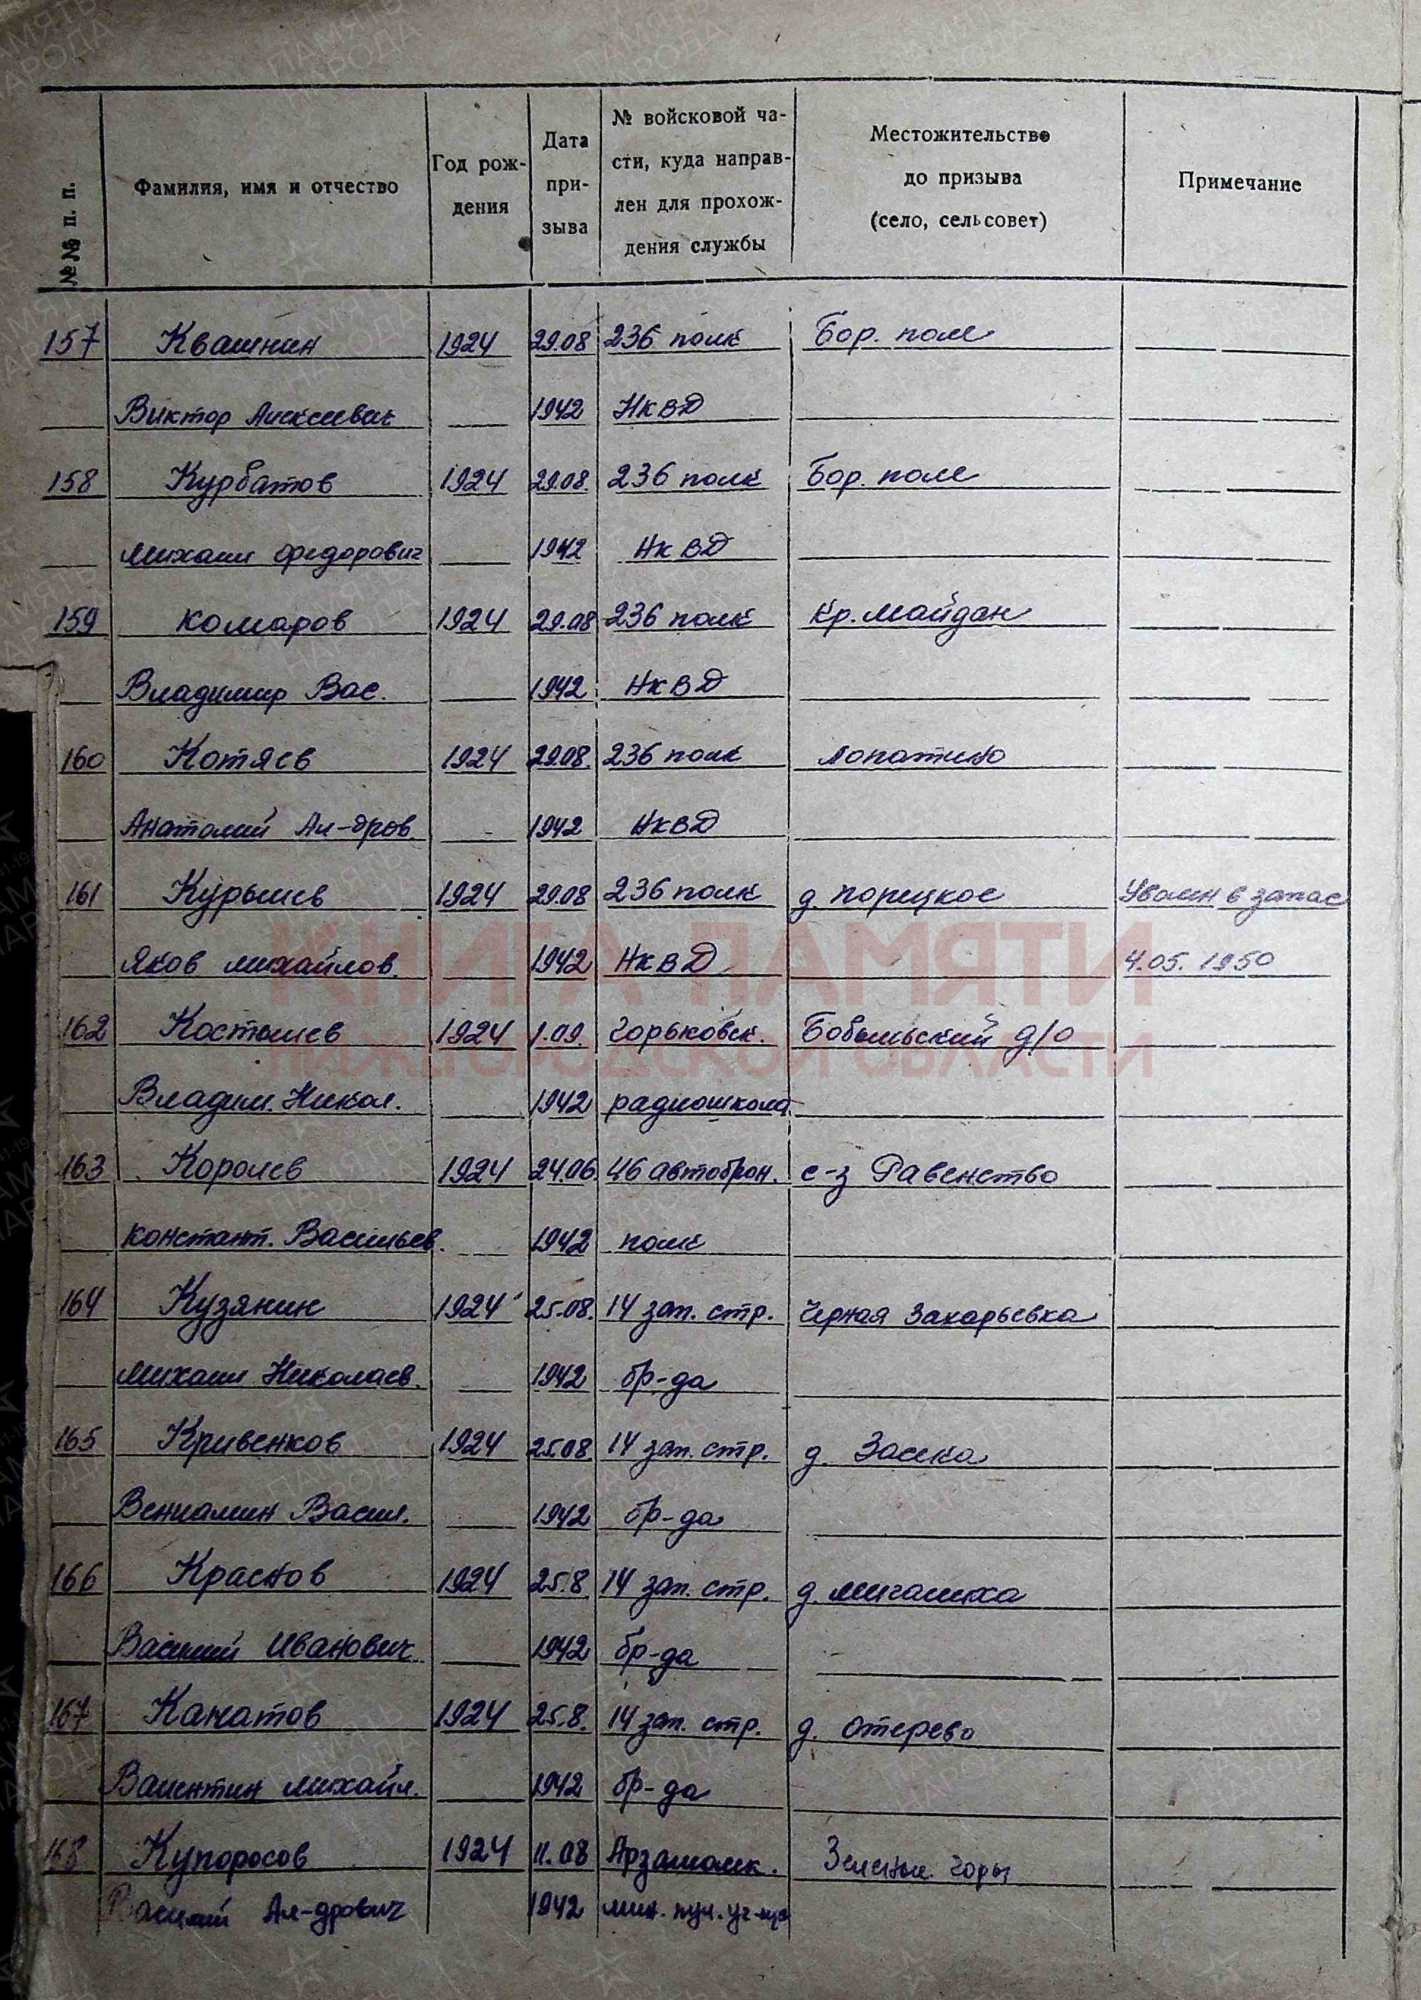 №№ п. п. Фамилия, имя и отчество Год рождения Дата призыва № войсковой части, куда направлен для прохождения службы Местожительство до призыва (село, сельсовет) Примечание
157 Квашнин 1924 29.08 236 полк Бор. поле
Виктор Алексеевич 1942 НКВД
158 Курбатов 1924 29.08. 236 полк Бор. поле
Михаил Федорович 1942 НКВД
159 Комаров 1924 29.08 236 полк Кр. Майдан
Владимир Вас. 1942 НКВД
160 Котяев 1924 29.08. 236 полк Лопатино
Анатолий Ал-дров 1942 НКВД
161 Курылев 1924 29.08 236 полк д. Порецкое Уволен в запас
Яков Михайлов. 1942 НКВД 4.05. 1950
КНИГА ПАМЯТИ
162 Костылев 1924 1.09. Горьковск. Бобыльский д/о
НИЖЕГОРОДСКОЙ ОБЛАСТИ
Владим. Никол. 1942 радиошкола
163 Королев 1924 24.06. 46 автоброн. с-з Равенство
Констант. Васильев. 1942 полк
164 Кузянин 1924 25.08. 14 зап. стр. Черная Захарьевка
Михаил Николаев. 1942 бр-да
165 Кривенков 1924 25.08. 14 зап. стр. д.
Вениамин Васил. 1942 бр-да
166 Краснов 1924 25.8. 14 зап. стр. д. Мигалиха
Василий Иванович 1942 бр-да
167 Канатов 1924 25.8. 14 зап. стр. д. Отерево
Валентин Михайл. 1942 бр-да
168 Купоросов 1924 11.08 Арзамаск. Зеленые горы
Василий Ал-дрович 1942 мин. пул. уч-ще